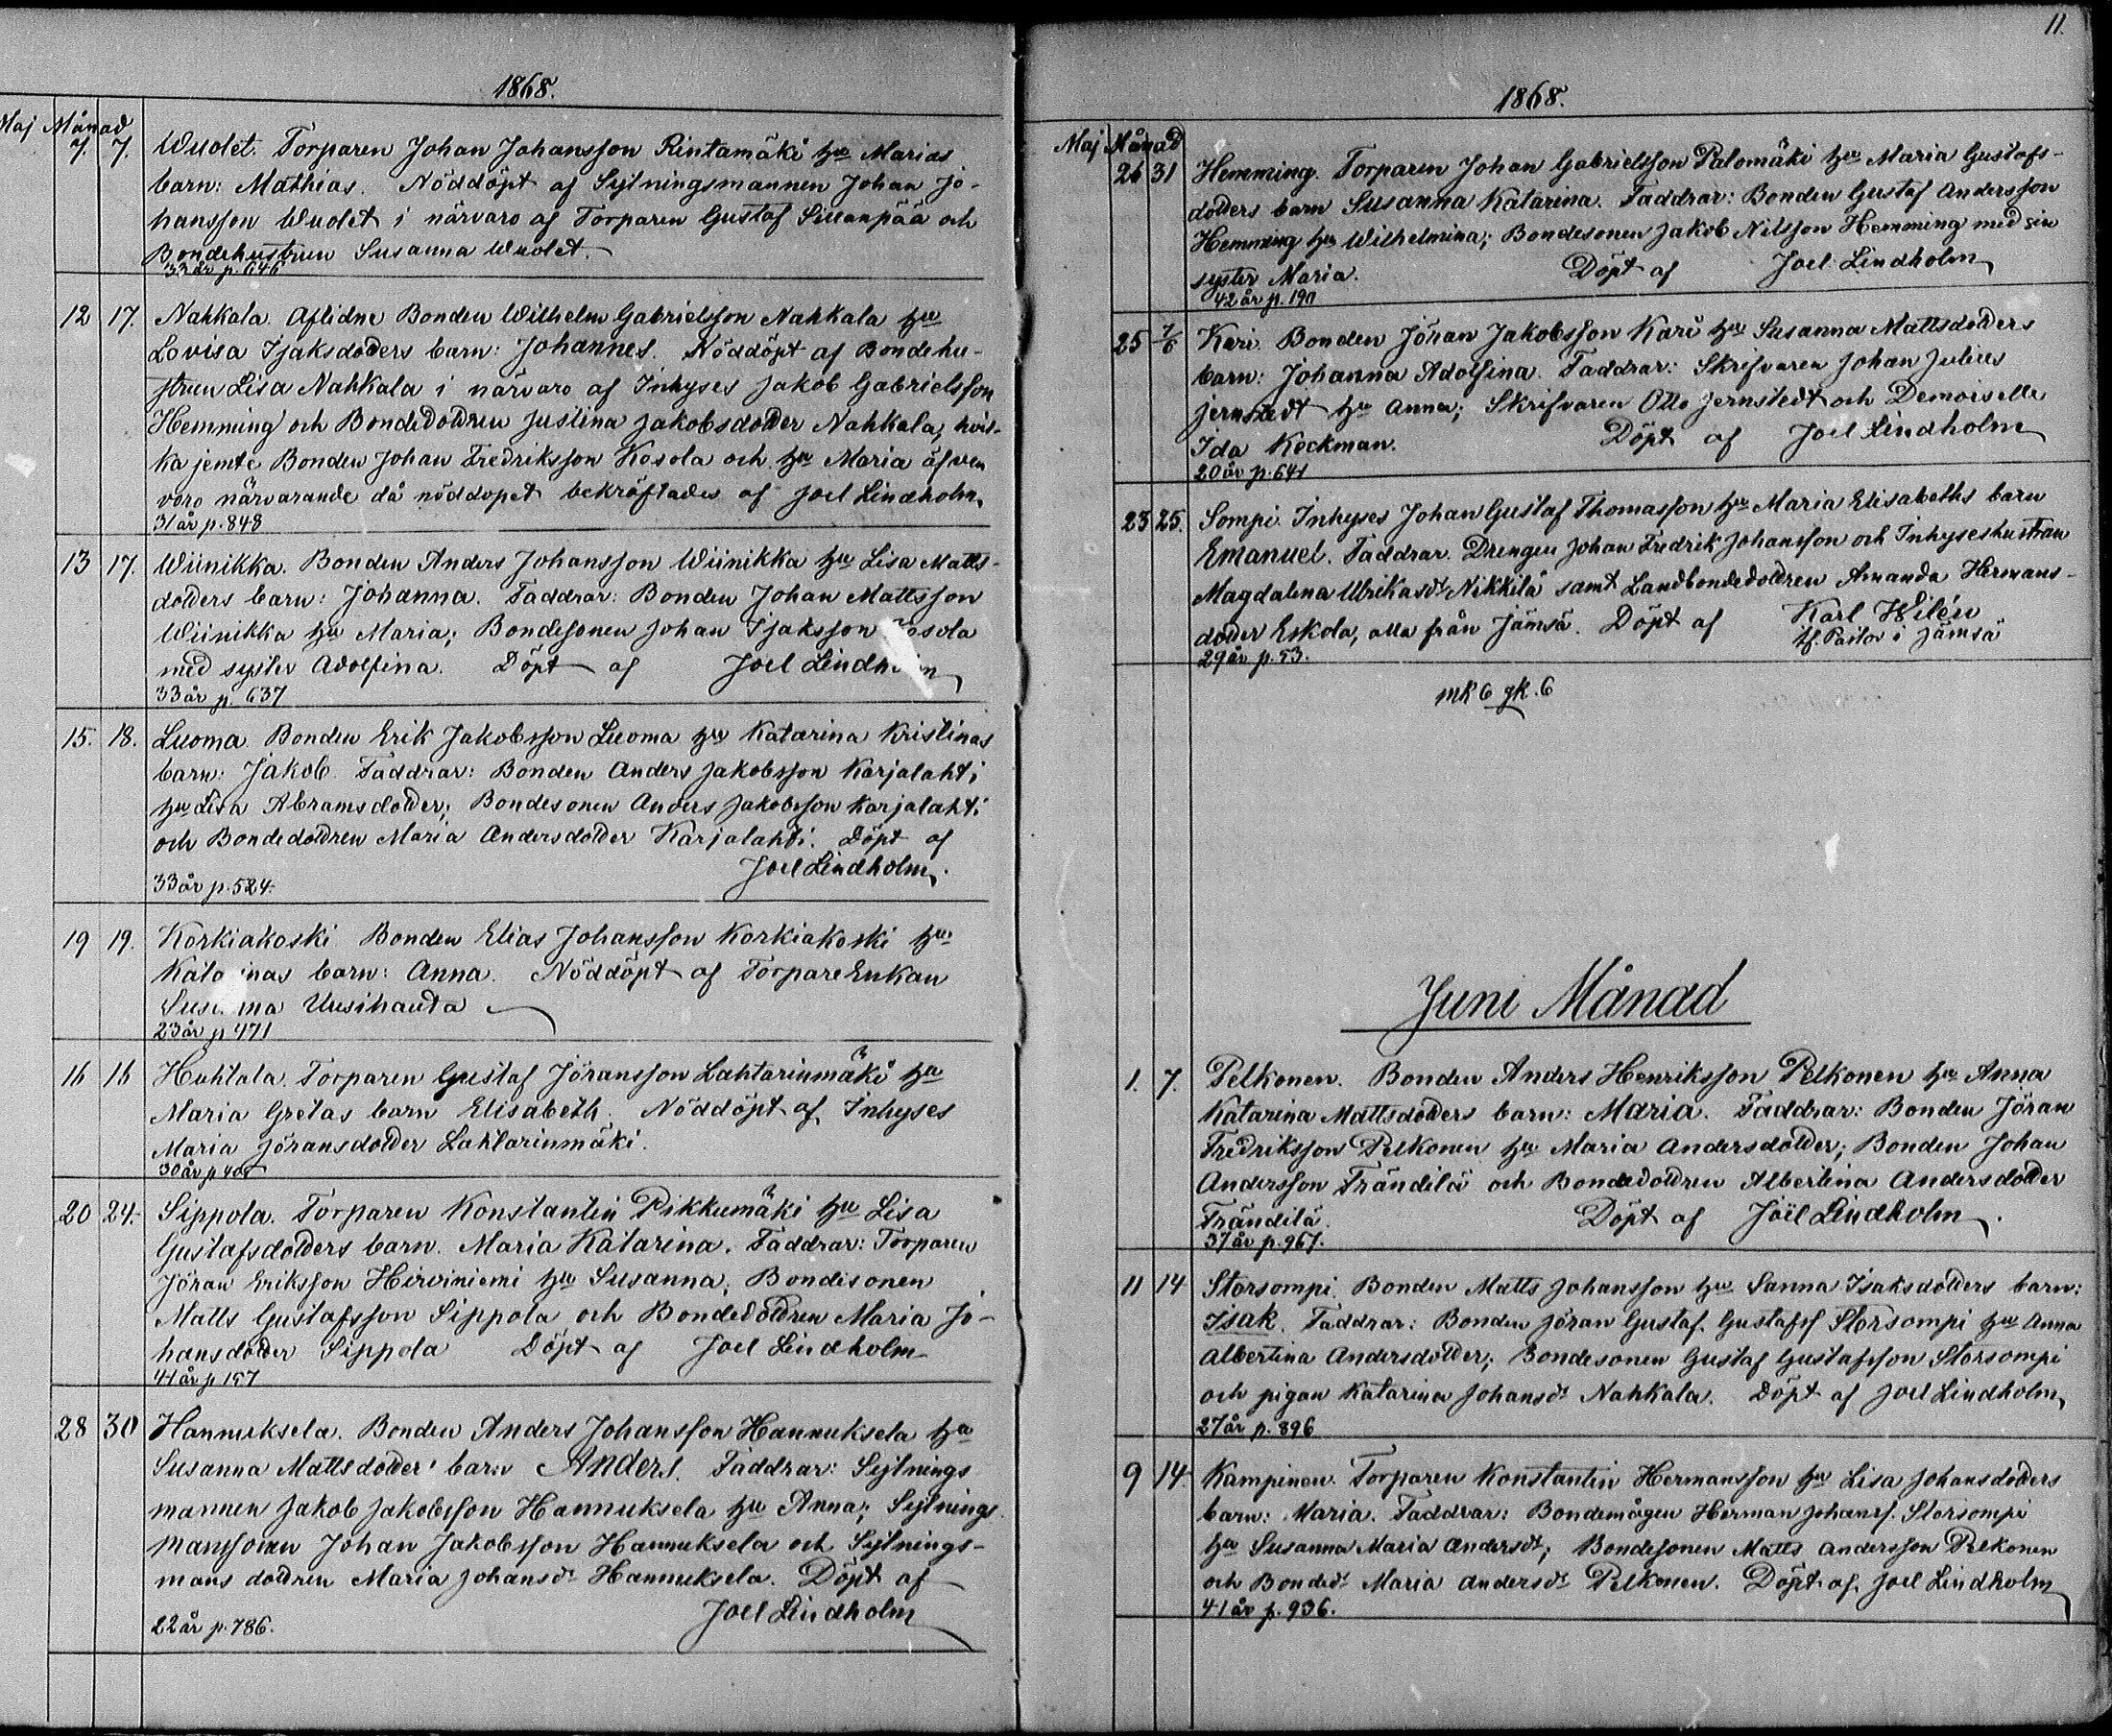 1868.
Maj Månad
7. 7. Wudet. Torparen Johan Johansson Rintamäki hu Marias
barn: Mathias. Nöddöpt af Sytningsmannen Johan Jo-
hansson Wudet i närvaro af Torparen Gustaf Sillanpää och
Bondehustrun Susanna Wudet.
33 år p. 646
12 17. Nahkala. Aflidne Bonden Wilhelm Gabrielsson Nahkala hu
Lovisa Isaksdotters barn: Johannes. Nöddöpt af Bondehu-
strun Lisa Nahkala i närvaro af Inhyses Jakob Gabrielsson
Hemming och Bondedottren Justina Jakobsdotter Nahkala, hvil-
ka jemte Bonden Johan Fredriksson Kosola och hu Maria äfven
voro närvarande då nöddopet bekräftades af Joel Lindholm
31 år p. 848
13 17. Wiinikka. Bonden Anders Johansson Wiinikka hu Lisa Matts-
dotters barn: Johanna. Faddrar: Bonden Johan Mattsson
Wiinikka hu Maria; Bondesonen Johan Isaksson Kosola
med syster Adolfina. Döpt af Joel Lindholm
33 år p. 637
15. 18. Luoma. Bonden Erik Jakobsson Luoma hu Katarina Kristinas
barn: Jakob. Faddrar: Bonden Anders Jakobsson Karjalahti
hu Lisa Abramsdotter; Bondesonen Anders Jakobsson Karjalahti
och Bondedottren Maria Andersdotter Karjalahti. Döpt af
Joel Lindholm.
33 år p. 524.
19 19. Korkiakoski. Bonden Elias Johansson Korkiakoski hu
Katarinas barn: Anna. Nöddöpt af Torpare Enkan
Susanna Uusihauta
23 år p 471
16 16 Huhtala. Torparen Gustaf Jöransson Lahtarinmäki hu
Maria Gretas barn Elisabeth. Nöddöpt af Inhyses
Maria Jöransdotter Lahtarinmäki.
30 år p
20 24. Sippola. Torparen Konstantin Pikkumäki hu Lisa
Gustafsdotters barn. Maria Katarina. Faddrar: Torparen
Jöran Eriksson Hirviniemi hu Susanna; Bondesonen
Matts Gustafsson Sippola och Bondedottren Maria Jo-
hansdotter Sippola Döpt af Joel Lindholm
41 år p 157
28 30 Hannuksela. Bonden Anders Johansson Hannuksela hu
Susanna Mattsdotter' barn Anders. Faddrar: Sytnings
mannen Jakob Jakobsson Hannuksela hu Anna; Sytnings
manssonen Johan Jakobsson Hannuksela och Sytnings-
mans dottren Maria Johansdr Hannuksela. Döpt af
Joel Lindholm
22 år p. 786.
11.
1868.
Maj Månad
26 31 Hemming. Torparen Johan Gabrielsson Palomäki hu Maria Gustafs-
dotters barn Susanna Katarina. Faddrar: Bonden Gustaf Andersson
Hemming hu Wilhelmina; Bondesonen Jakob Nilsson Hemming med sin
syster Maria. Döpt af Joel Lindholm
42 år p. 190
25 7/6 Kari. Bonden Jöran Jakobsson Kari hu Susanna Mattsdotters
barn: Johanna Adolfina. Faddrar: Skrifvaren Johan Julius
Jernstedt hu Anna; Skrifvaren Otto Jernstedt och Demoiselle
Ida Keckman. Döpt af Joel Lindholm
20 år p. 641
23 25. Sompi. Inhyses Johan Gustaf Thomasson hu Maria Elisabeths barn
Emanuel. Faddrar. Drengen Johan Fredrik Johansson och Inhyseshustrun
Magdalena Ulrikasdr Nikkilä samt Landbondedottren Amanda Hermans-
dotter Eskola, alla från Jämsä. Döpt af Karl Wilén
tf. Pastor i Jämsä
29 år p. 53.
mk 6 qk. 6
Juni Månad
1. 7. Pelkonen. Bonden Anders Henriksson Pelkonen hu Anna
Katarina Mattsdotters barn: Maria. Faddrar: Bonden Jöran
Fredriksson Pelkonen hu Maria Andersdotter; Bonden Johan
Andersson Frändilä och Bondedottren Albertina Andersdotter
Frändilä. Döpt af Joël Lindholm.
37 år p. 967.
11 14 Storsompi. Bonden Matts Johansson hu Sanna Isaksdotters barn:
Isak. Faddrar: Bonden Jöran Gustaf Gustafss Storsompi hu Anna
Albertina Andersdotter; Bondesonen Gustaf Gustafsson Storsompi
och pigan Katarina Johansdr Nahkala. Döpt af Joel Lindholm
27 år p. 896
9 14. Kampinen. Torparen Konstantin Hermansson hu Lisa Johansdotters
barn: Maria. Faddrar: Bondemågen Herman Johanss. Storsompi
hu Susanna Maria Andersdr; Bondesonen Matts Andersson Pelkonen
och Bondedr Maria Andersdr Pelkonen. Döpt af Joel Lindholm
41 år p. 936.